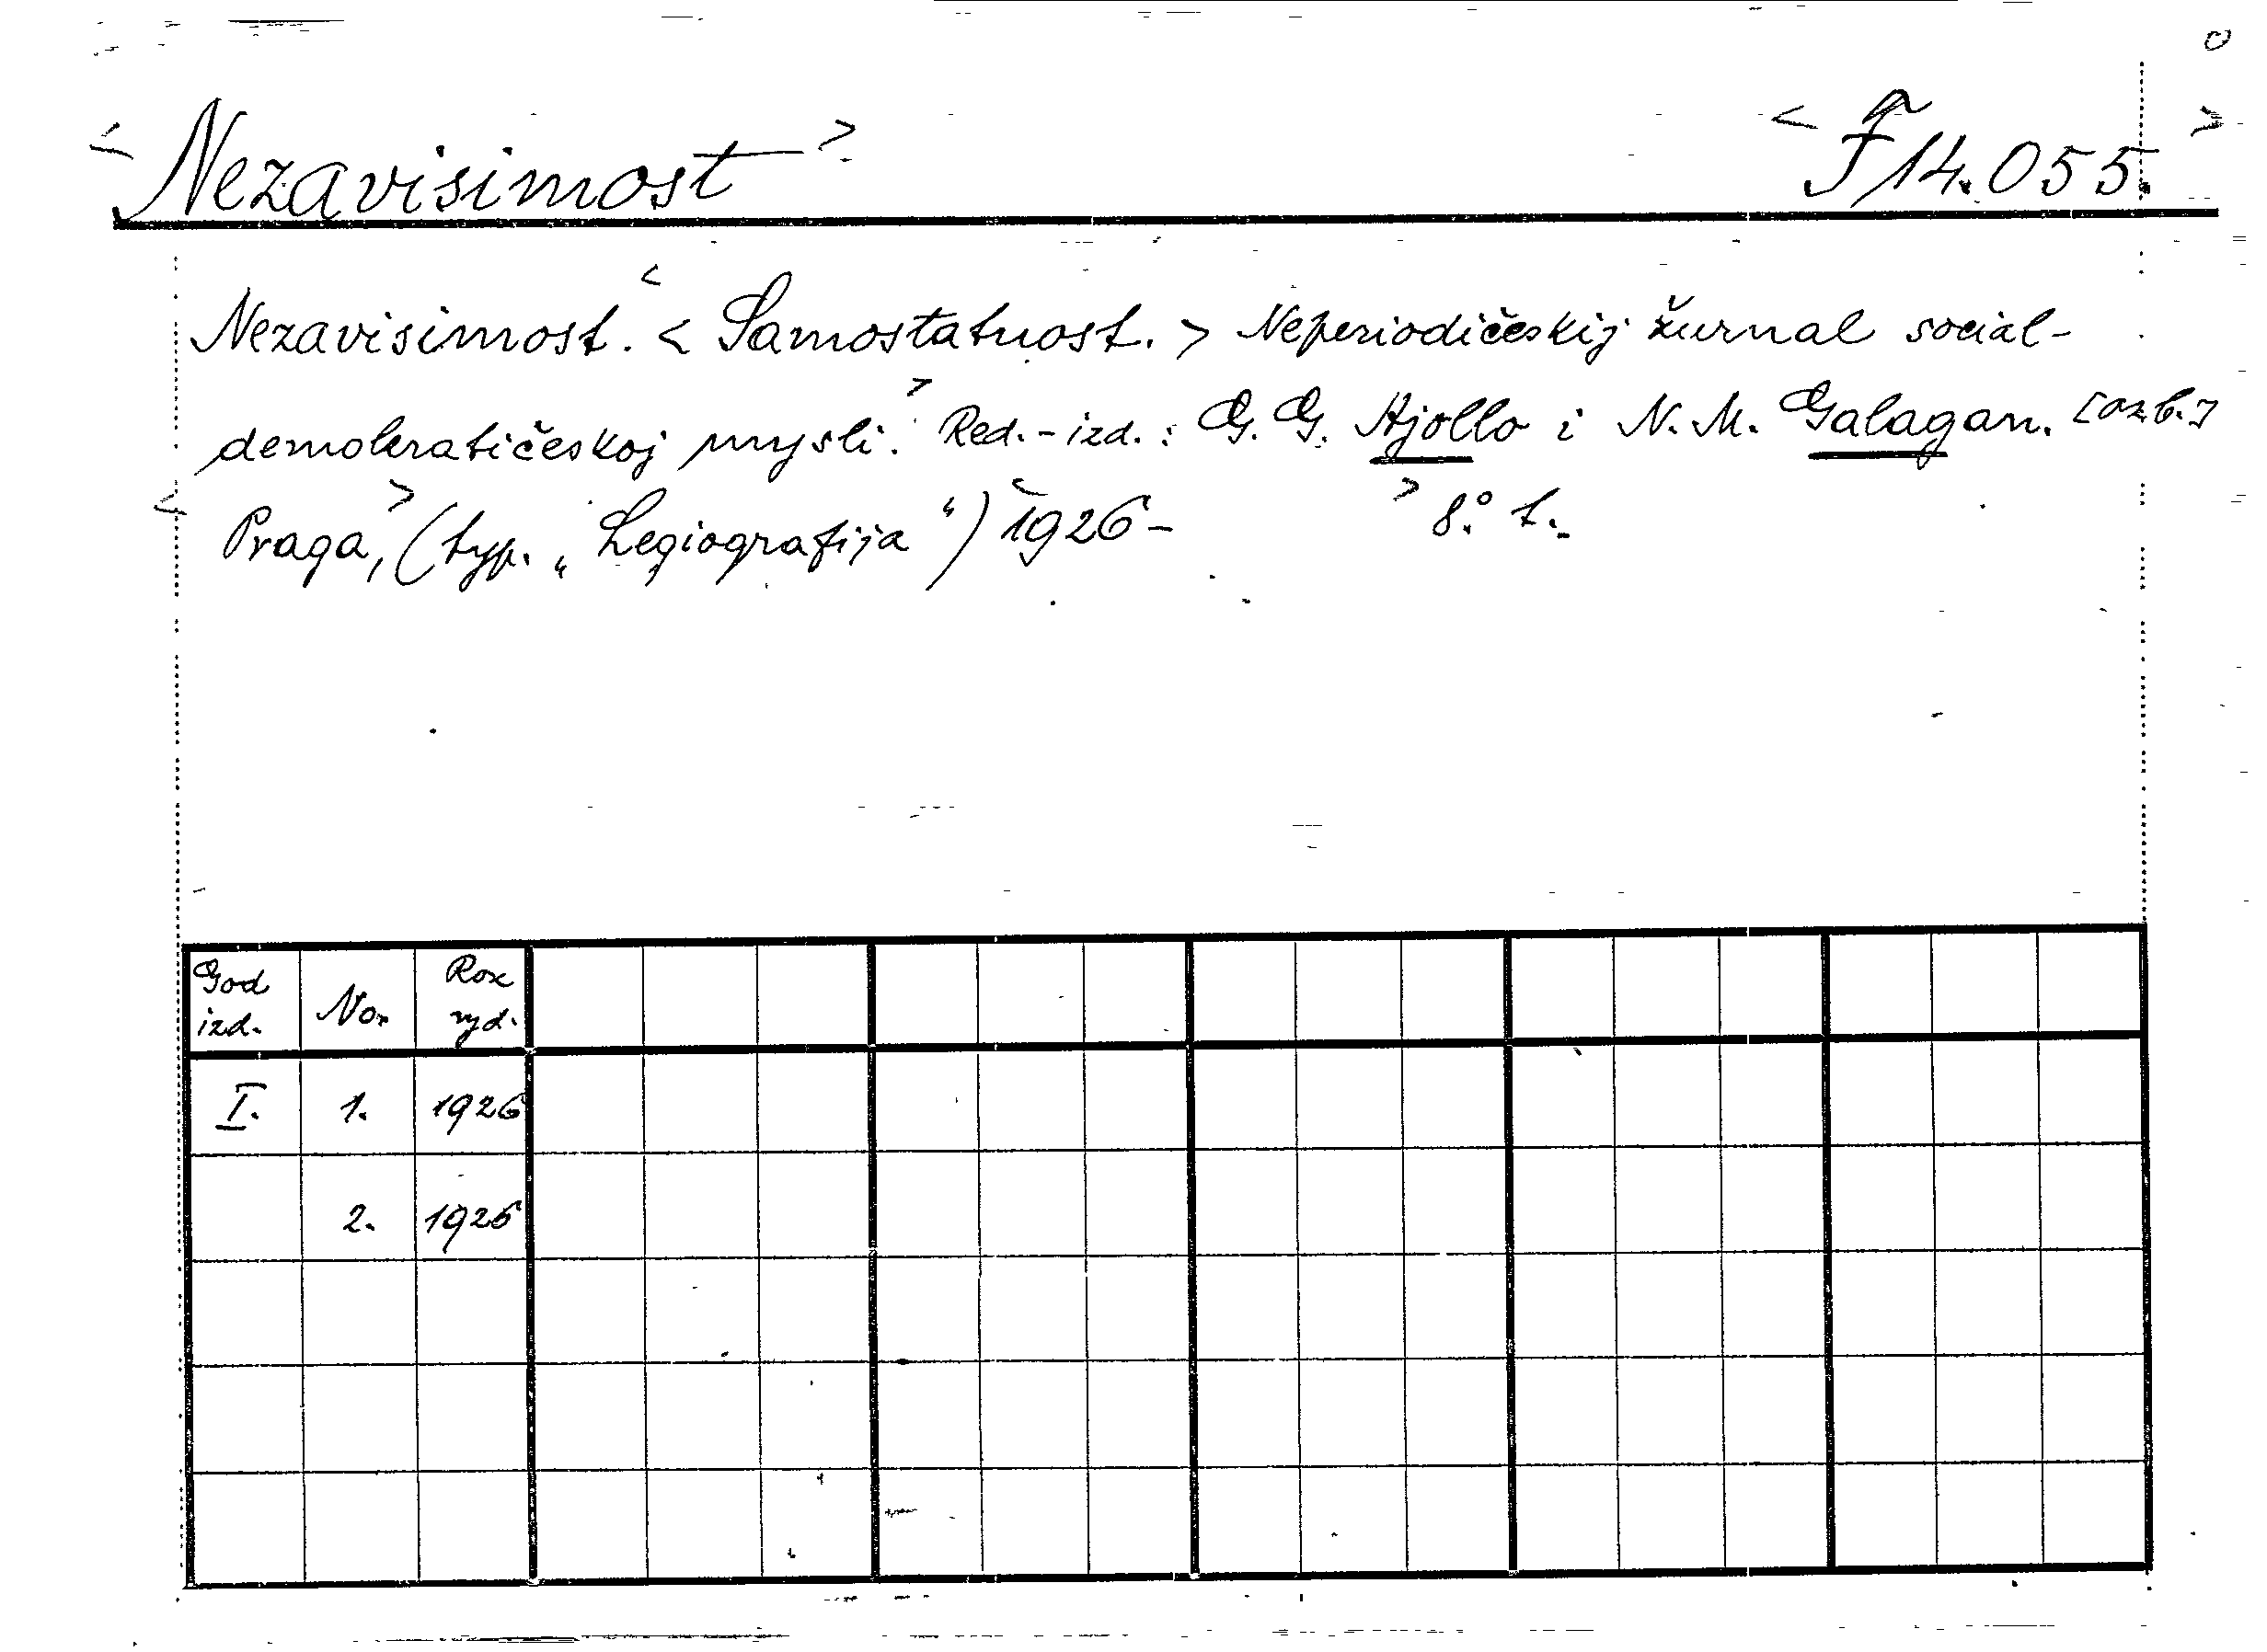 < Nezavisimost > < F 14.055. >
Nezavisimost. < Samostatnost. > Neperiodičeskij žurnal social-
demokratičeskoj mysli. Red.-izd.: G. G. Hjollo i N. M. Galagan.
Praga, (typ. „Legiografija“) 1926- 8.° t.
God izd. No. Rok vyd.
I. 1. 1926
2. 1926